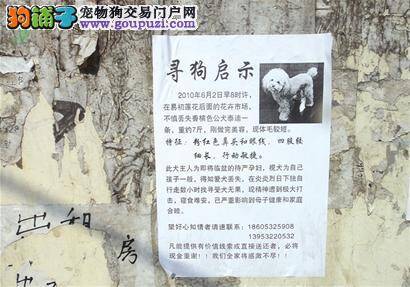 狗铺子
宠物狗交易门户网
www.goupuzi.com
寻狗启示
2010年6月2日早8时许,
在易初莲花后面的花卉市场,
不慎丢失香槟色公犬泰迪一
条,重约7斤,刚做完美容,现体毛较短。
特征:粉红色鼻头和眼线,四肢较
细长,行动敏捷。
此犬主人为即将临盆的待产孕妇,视犬为自己
孩子一般,得知爱犬丢失,在处处烈日下独自
行走数小时找寻受犬无果,现精神遭到极大打
击,寝食难安,已严重影响到母子健康和家庭
合睦。
望好心知情者请速联系:18605325908
13953220532
凡能提供有价值线索或直接送还者,必将
现金重谢!!我们全家将感激不尽!!
出租
房